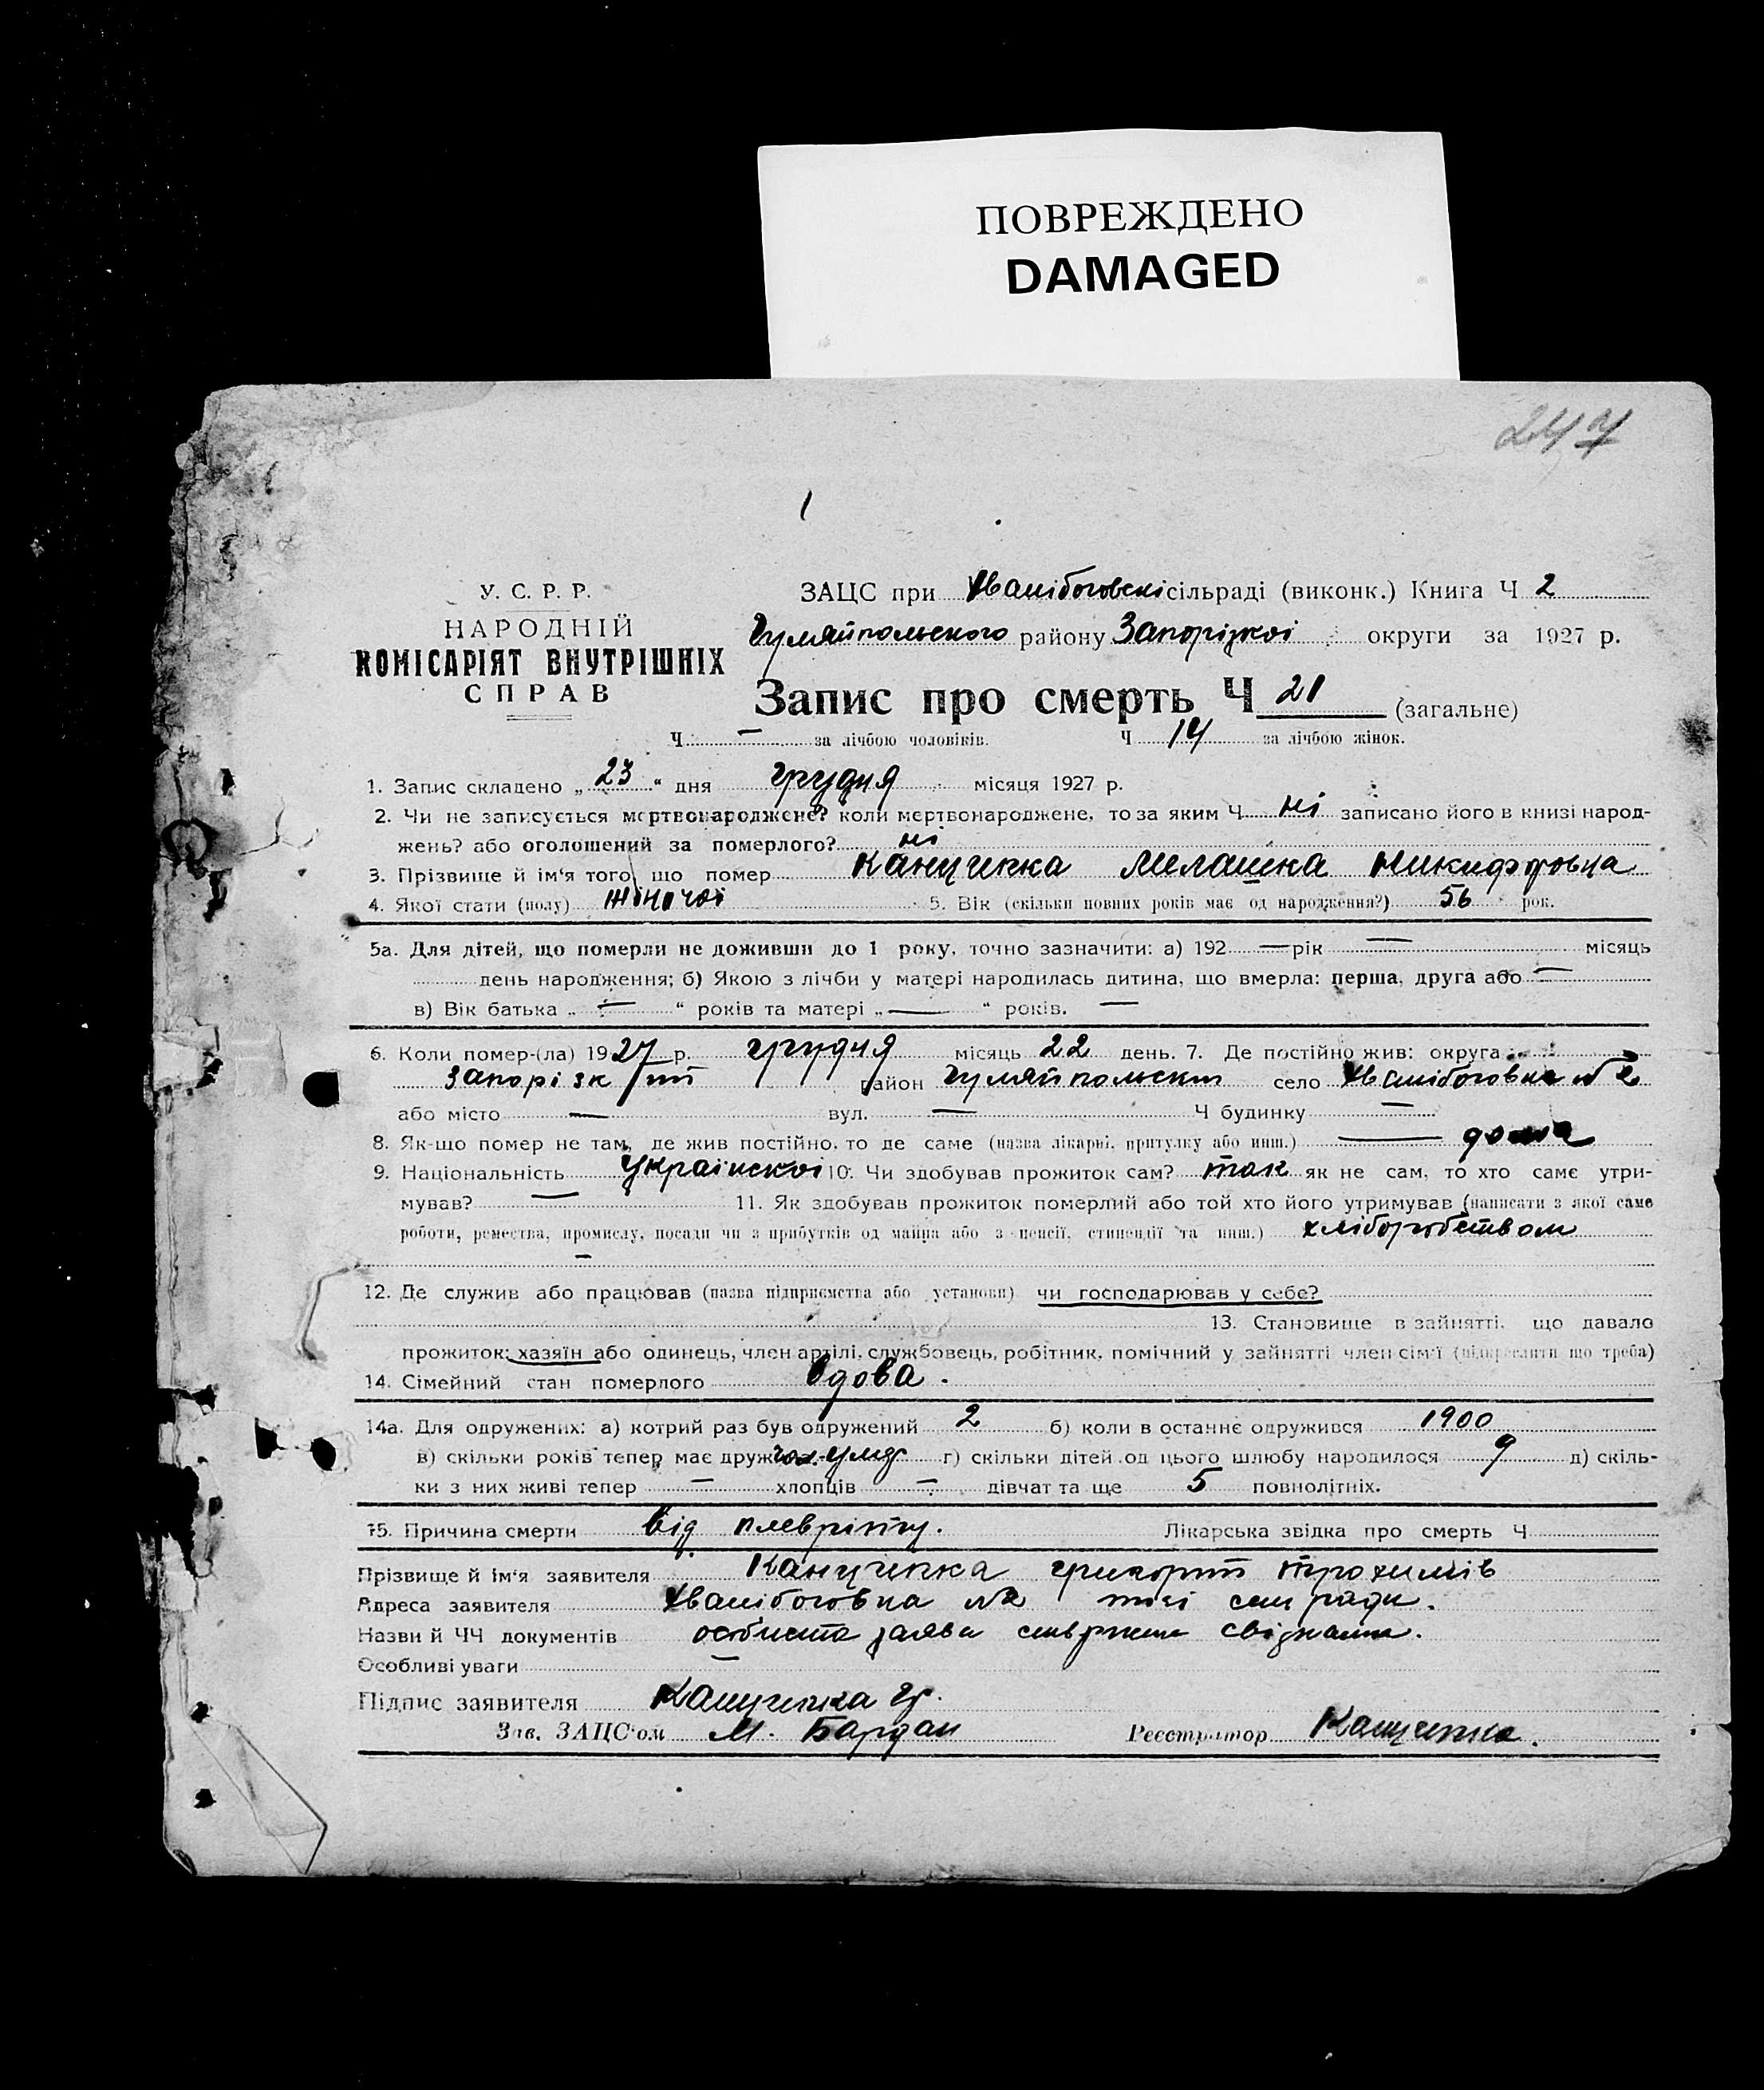 ПОВРЕЖДЕНО
DAMAGED
247
У. С. Р. Р.
НАРОДНІЙ
КОМІСАРІЯТ ВНУТРІШНІХ
СПРАВ
ЗАЦС при сільраді (виконк.) Книга Ч 2
Гуляйпольского району Запорізкоі округи за 1927 р.
Запис про смерть Ч 21 (загальне)
Ч — за лічбою чоловіків. Ч 14 за лічбою жінок.
1. Запис складено „ 23 “ дня грудня місяця 1927 р.
2. Чи не записується мертвонароджене? коли мертвонароджене, то за яким Ч ні записано його в книзі народ-
жень? або оголошений за померлого? ні
3. Прізвище й ім'я того, що помер Мелашка Никифоровна
4. Якої стати (полу) жіночоі 5. Вік (скільки повних років має од народження?) 56 рок.
5а. Для дітей, що померли не доживши до 1 року, точно зазначити: а) 192 — рік — місяць
день народження; б) Якою з лічби у матері народилась дитина, що вмерла: перша, друга або —
в) Вік батька „ — “ років та матері „ — “ років. —
6. Коли помер-(ла) 1927 р. грудня місяць 22 день. 7. Де постійно жив: округа
Запорізк район Гуляйпольский село №2
або місто — вул. — Ч будинку —
8. Як-що помер не там, де жив постійно, то де саме (назва лікарні, притулку або инш.) — дома
9. Національність Украінскоі 10. Чи здобував прожиток сам? так як не сам, то хто саме утри-
мував? — 11. Як здобував прожиток померлий або той хто його утримував (написати з якої саме
роботи, ремества, промислу, посади чи з прибутків од майна або з пенсії, стипендії та инш.) хліборобством
—
12. Де служив або працював (назва підприємства або установи) чи господарював у себе?
13. Становище в зайнятті, що давало
прожиток: хазяїн або одинець, член артілі, службовець, робітник, помічний у зайнятті член сім'ї (підкреслити що треба)
14. Сімейний стан померлого вдова.
14а. Для одружених: а) котрий раз був одружений 2 б) коли в останнє одружився 1900
в) скільки років тепер має друж г) скільки дітей од цього шлюбу народилося 9 д) скіль-
ки з них живі тепер — хлопців — дівчат та ще 5 повнолітніх.
15. Причина смерти від плевріту. Лікарська звідка про смерть Ч
Прізвище й ім'я заявителя Трохимів
Адреса заявителя №2 сел ради.
Назви й ЧЧ документів особиста заява свідками.
Особливі уваги —
Підпис заявителя Гр.
Зав. ЗАЦС'ом М. Бардан Реєстратор